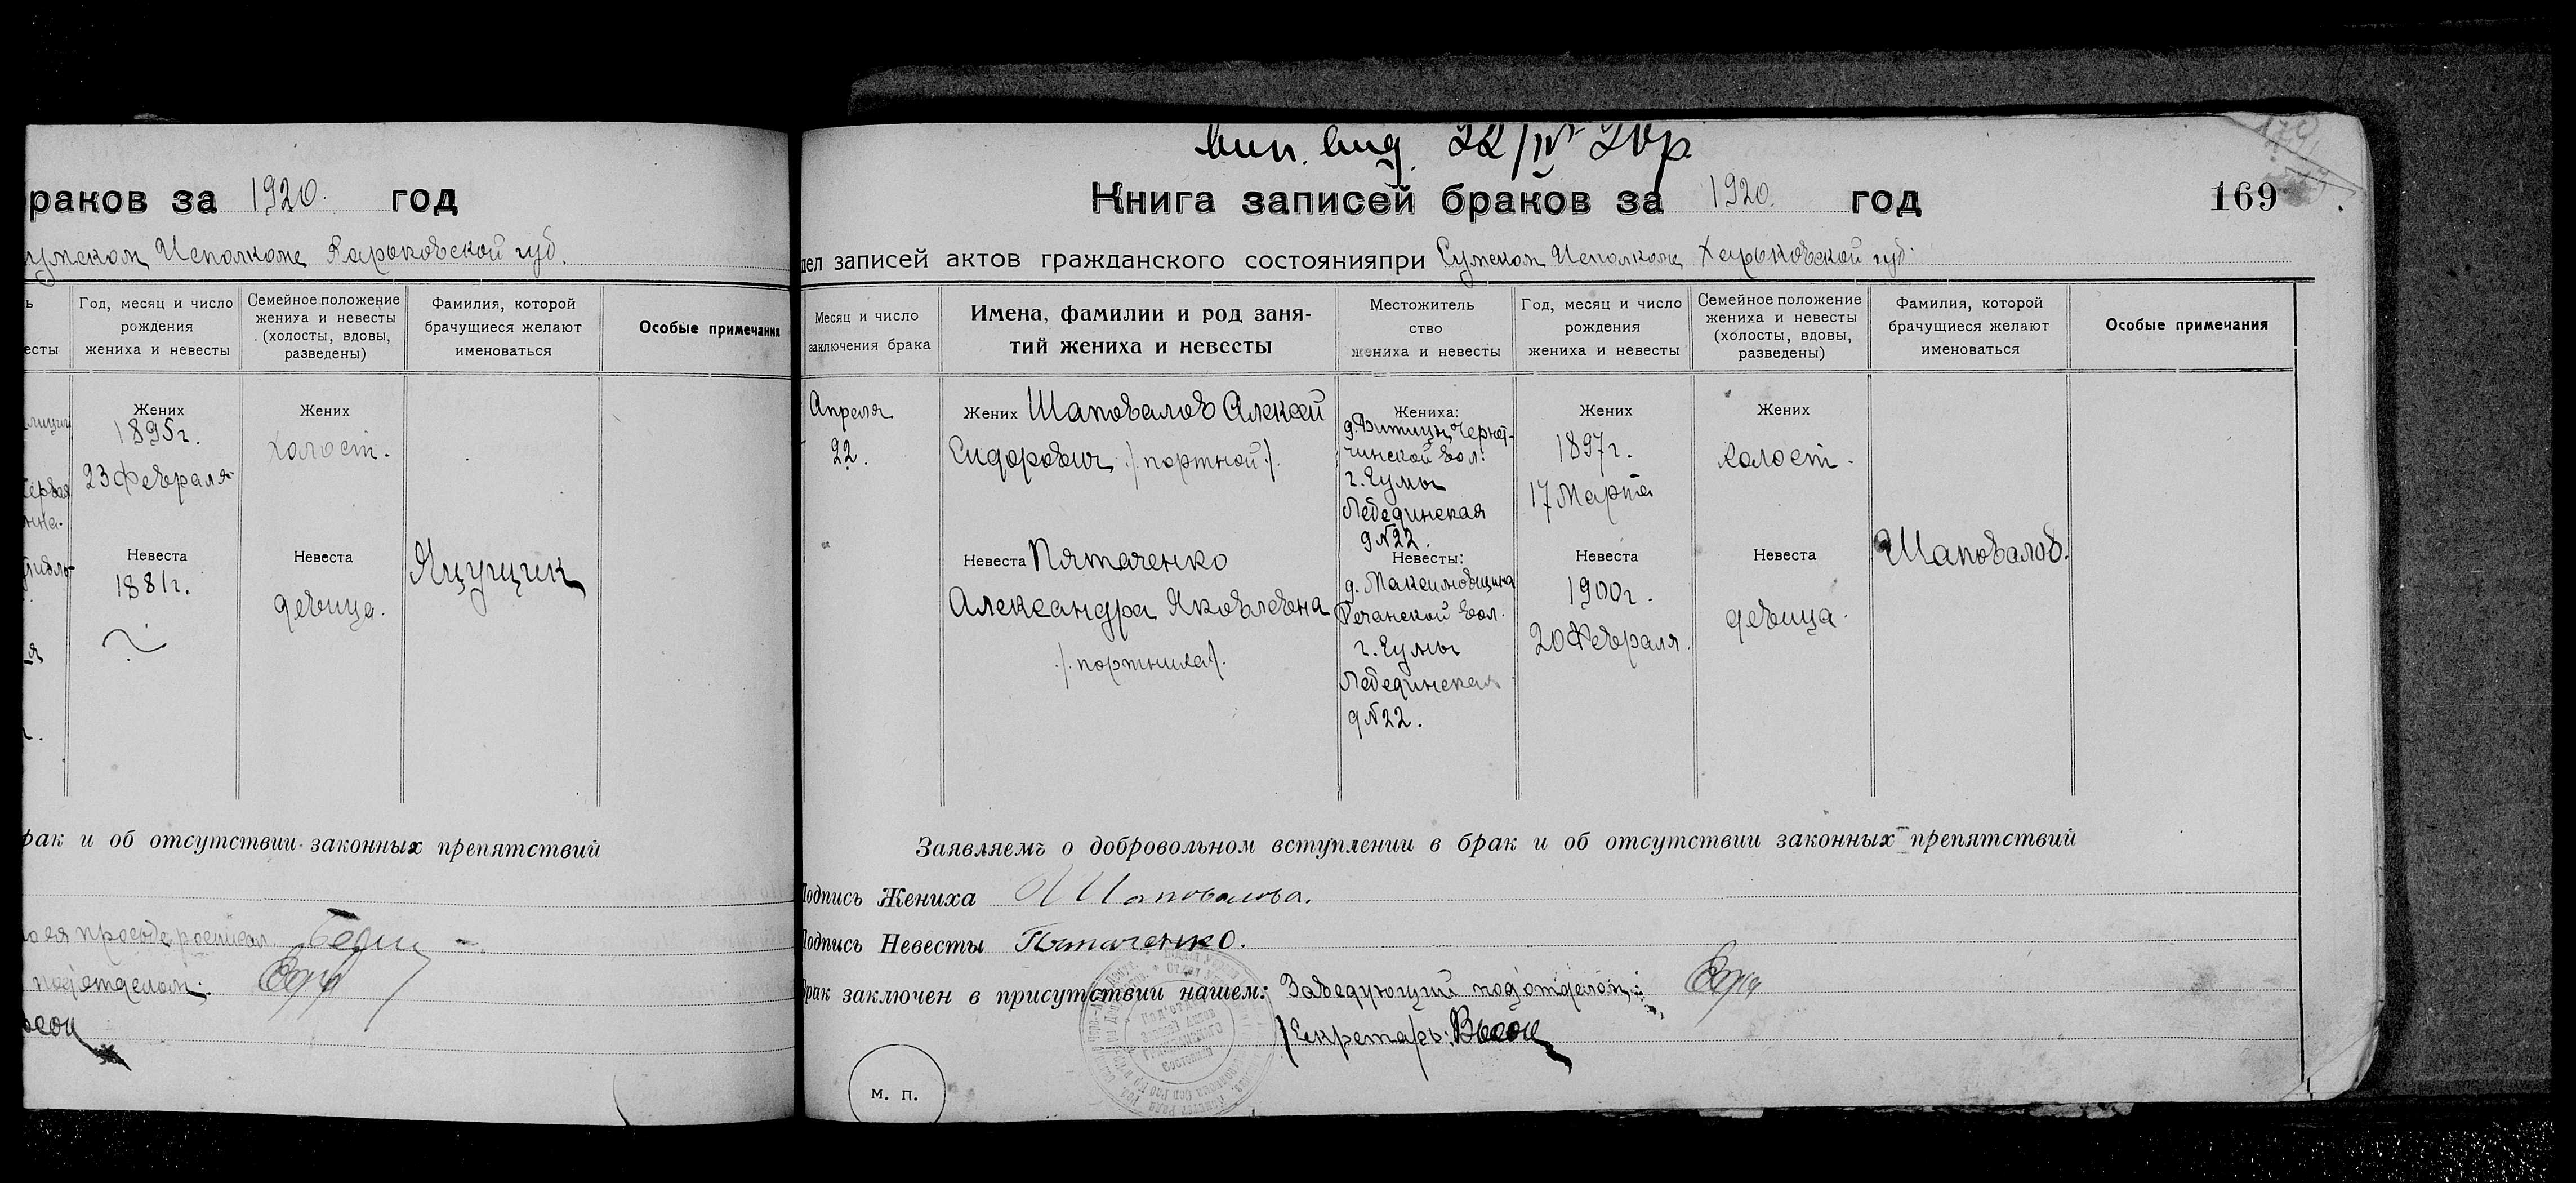 раков за 1920. год
Исполкоме Харьковской губ.
Год, месяц и число рождения жениха и невесты
Семейное положение жениха и невесты (холосты, вдовы, разведены)
Фамилия, которой брачущиеся желают именоваться
Особые примечания
Жених
1895г.
23 февраля
Жених
холост.
Невеста
1881г.
Невеста
девица.
Яцущик
рак и об отсутствии законных препятствий
подотделом:
вып. вид. 22/IV 20р
Книга записей браков за 1920. год
169
дел записей актов гражданского состоянияпри Сумском Исполкоме Харьковской губ.
Месяц и число
заключения брака
Имена, фамилии и род заня-
тий жениха и невесты
Местожитель
ство
жениха и невесты
Год, месяц и число
рождения
жениха и невесты
Семейное положение
жениха и невесты
(холосты, вдовы,
разведены)
Фамилия, которой
брачущиеся желают
именоваться
Особые примечания
Апреля
22.
Жених Шаповалов Алексей
Сидорович /портной/.
Невеста Пятаченко
Александра Яковлевна
/портниха/.
Жениха:
чинской вол.
г. Сумы
Лебединская
д №22.
Невесты:
д. Максимовщина
Речанской вол.
г. Сумы
Лебединская
д №22.
Жених
1897г.
17 Марта
Невеста
1900г.
20 Февраля.
Жених
холост.
Невеста
девица.
Шаповалов.
Заявляемъ о добровольном вступлении в брак и об отсутствии законных препятствий
Подпись Жениха Шаповалова.
Подпись Невесты Пятаченко.
Брак заключен в присутствии нашем: Заведующий подотделом:
Секретарь:
м. п.